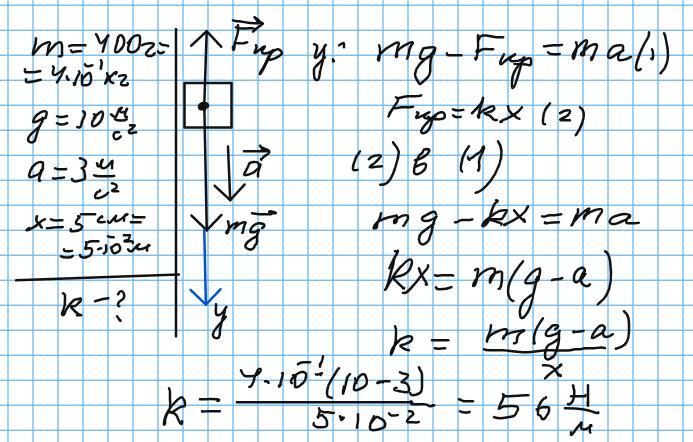 m = 400г =
= 4·10⁻¹ кг
g = 10 м/с²
a = 3 м/с²
x = 5 см =
= 5·10⁻² м
k - ?
Fупр
a
mg
y
y: mg - Fупр = ma (1)
Fупр = kx (2)
(2) в (1)
mg - kx = ma
kx = m(g - a)
k = m(g - a) / x
k = 4·10⁻¹(10 - 3) / 5·10⁻² = 56 Н/м